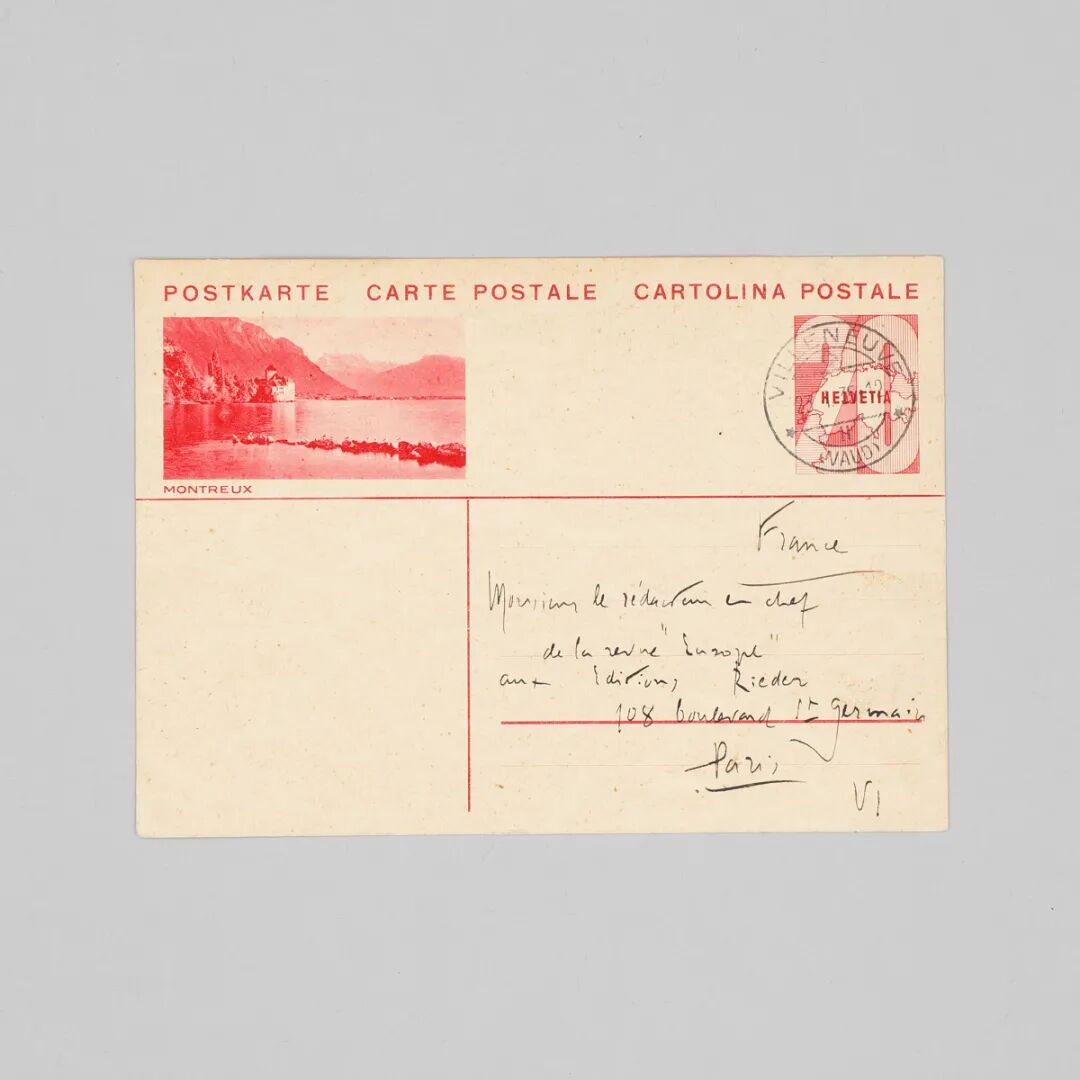 POSTKARTE CARTE POSTALE CARTOLINA POSTALE
MONTREUX
VILLENEUVE
HELVETIA
(VAUD)
France
Monsieur le rédacteur en chef
de la revue "Europe"
aux Editions Rieder
108 boulevard St Germain
Paris
VI